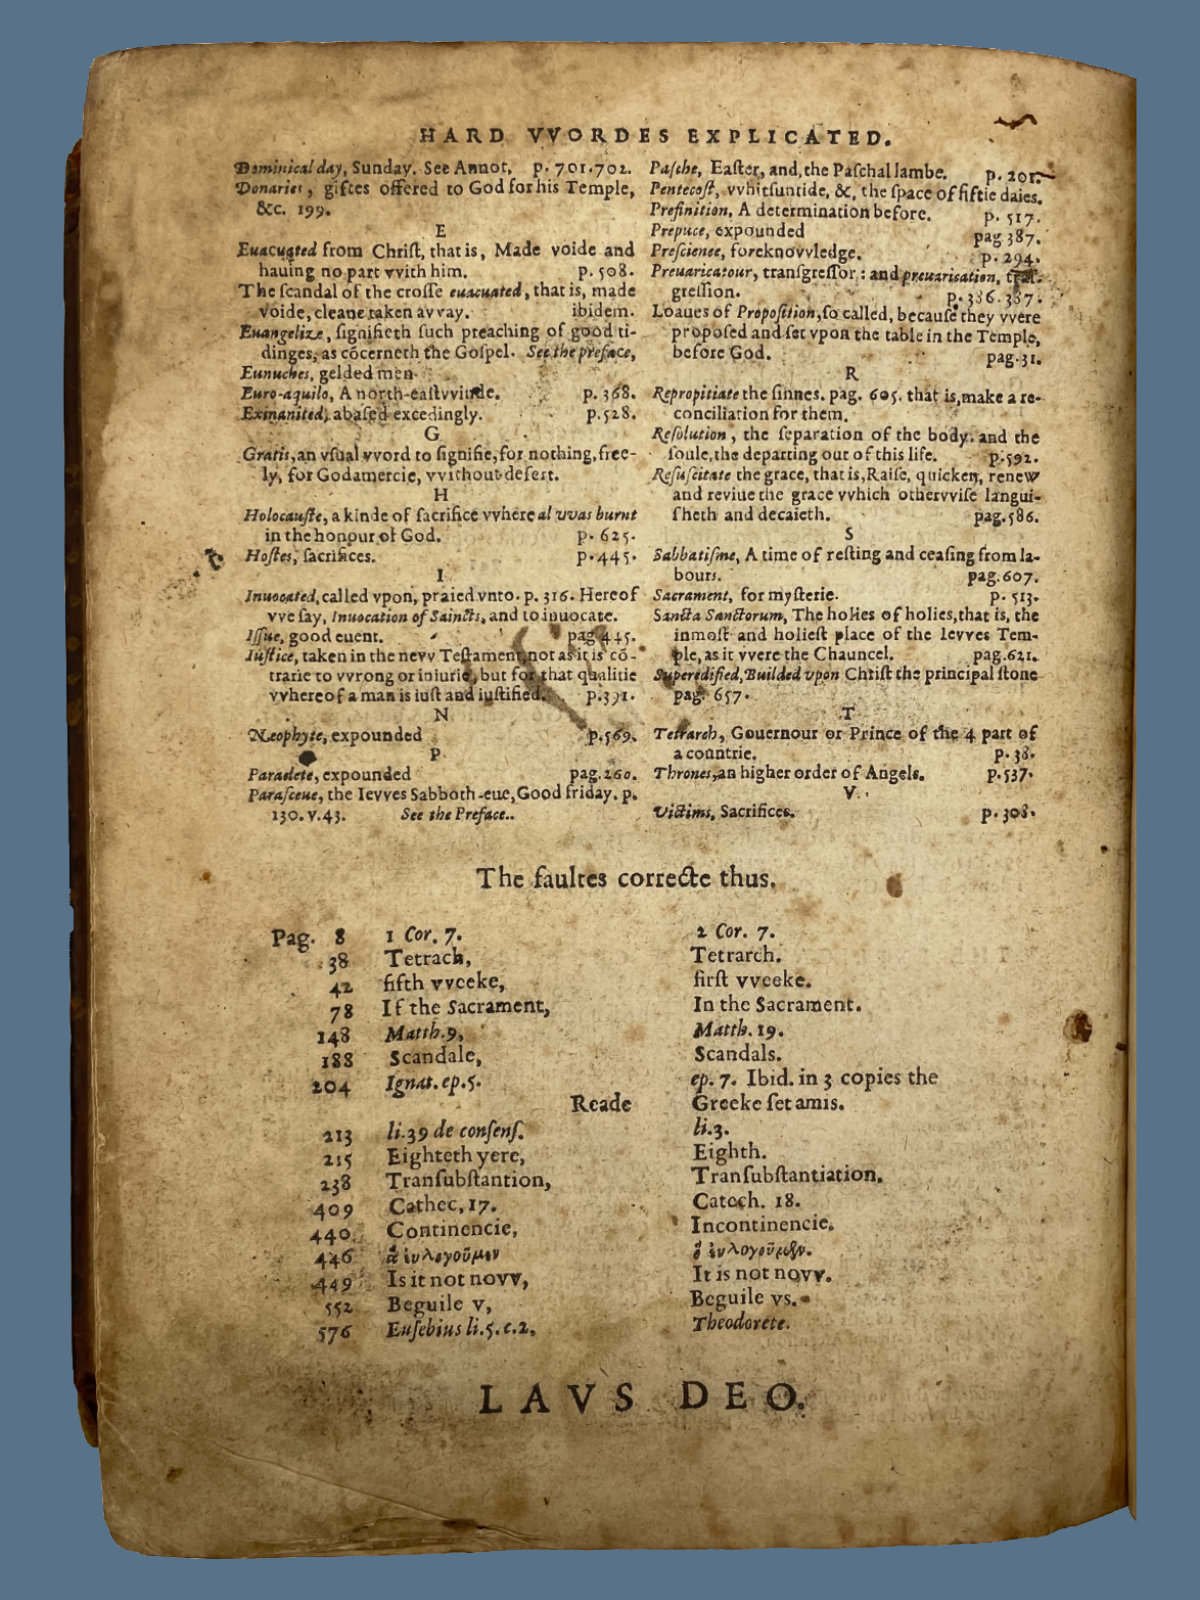 HARD VVORDES EXPLICATED.
Dominical day, Sunday. See Annot. p. 701.702.
Donaries, giftes offered to God for his Temple,
&c. 199.
E
Euacuated from Chriſt, that is, Made voide and
hauing no part vvith him. p. 508.
The ſcandal of the croſſe euacuated, that is, made
voide, cleane taken avvay. ibidem.
Euangelize, ſignifieth ſuch preaching of good ti-
dinges, as cõcerneth the Goſpel. See the preface,
Eunuches, gelded men
Euro-aquilo, A north-eaſtvvinde. p. 368.
Exinanited, abaſed excedingly. p.528.
G
Gratis, an vſual vvord to ſignifie, for nothing, free-
ly, for Godamercie, vvithout deſert.
H
Holocauſte, a kinde of ſacrifice vvhere al vvas burnt
in the honour of God. p. 625.
Hoſtes, ſacrifices. p. 445.
I
Inuocated, called vpon, praied vnto. p. 316. Hereof
vve ſay, Inuocation of Saincts, and to inuocate.
Iſſue, good euent. pag 445.
Iuſtice, taken in the nevv Teſtament, not as it is cõ-
trarie to vvrong or iniurie, but for that qualitie
vvhereof a man is iuſt and iuſtified. p.391.
N
Neophyte, expounded p.569.
P
Paraclete, expounded pag.260.
Paraſceue, the Ievves Sabboth-eue, Good friday. p.
130. v.43. See the Preface..
Paſche, Eaſter, and, the Paſchal lambe. p. 201.
Pentecoſt, vvhitſuntide, &, the ſpace of fiftie daies.
Prefinition, A determination before. p. 517.
Prepuce, expounded pag 387.
Preſcience, foreknovvledge. p. 294.
Preuaricatour, tranſgreſſor: and preuarication, tranſ-
greſſion. p.386.387.
Loaues of Propoſition, ſo called, becauſe they vvere
propoſed and ſet vpon the table in the Temple,
before God. pag.31.
R
Repropitiate the ſinnes. pag. 605. that is, make a re-
conciliation for them.
Reſolution, the ſeparation of the body. and the
ſoule, the departing out of this life. p.592.
Reſuſcitate the grace, that is, Raiſe, quicken, renew
and reviue the grace vvhich othervviſe langui-
ſheth and decaieth. pag.586.
S
Sabbatiſme, A time of reſting and ceaſing from la-
bours. pag.607.
Sacrament, for myſterie. p. 513.
Sancta Sanctorum, The holies of holies, that is, the
inmoſt and holieſt place of the Ievves Tem-
ple, as it vvere the Chauncel. pag.621.
Superedified, Builded vpon Chriſt the principal ſtone
pag. 657.
T
Tetrarch, Gouernour or Prince of the 4 part of
a countrie. p. 38.
Thrones, an higher order of Angels. p.537.
V.
Victims, Sacrifices. p. 308.
The faultes correcte thus.
Pag. 8 1 Cor. 7. 2 Cor. 7.
38 Tetrach, Tetrarch.
42 fifth vveeke, firſt vveeke.
78 If the Sacrament, In the Sacrament.
148 Matth.9, Matth. 19.
188 Scandale, Scandals.
204 Ignat. ep.5. ep. 7. Ibid. in 3 copies the
Reade Greeke ſet amis.
213 li.39 de conſenſ. li.3.
215 Eighteth yere, Eighth.
238 Tranſubſtantion, Tranſubſtantiation.
409 Cathec, 17. Catech. 18.
440 Continencie, Incontinencie.
446 ἃ ἐυλογοῦμεν ὃ ἐυλογοῦμεν.
449 Is it not novv, It is not novv.
552 Beguile v, Beguile vs.
576 Euſebius li.5.c.2, Theodorete.
LAVS DEO.